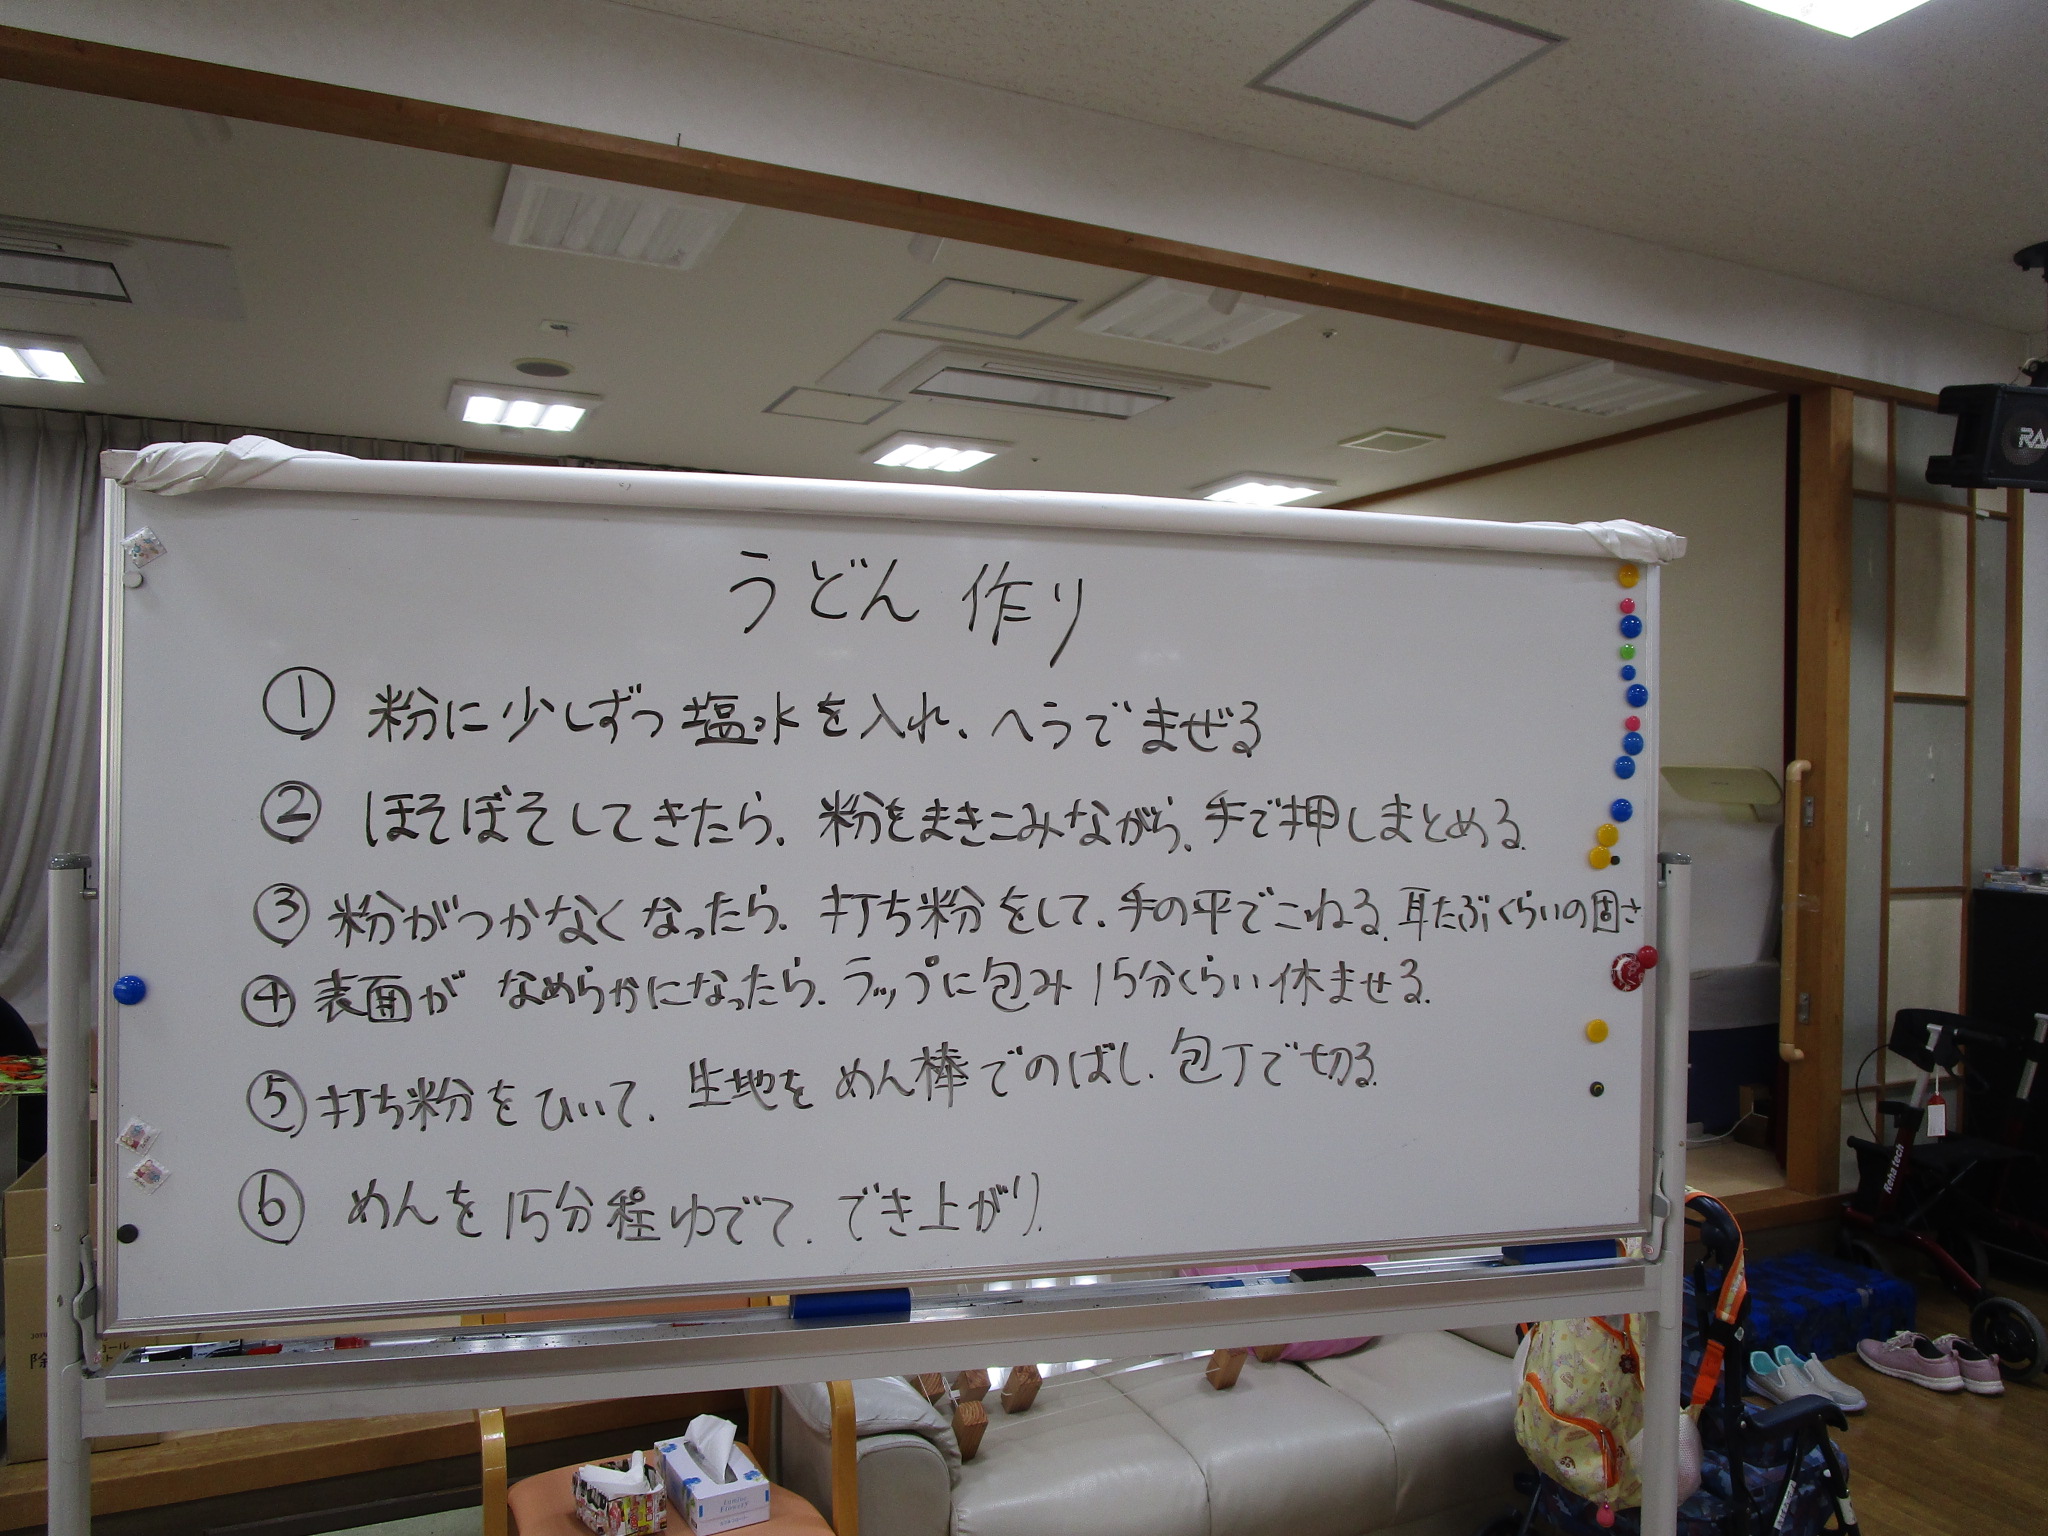 うどん 作り
① 粉に少しずつ塩水を入れ、ヘラでまぜる
② ぼそぼそしてきたら、粉をまきこみながら、手で押しまとめる。
③ 粉がつかなくなったら、打ち粉をして、手の平でこねる。耳たぶくらいの固さ
④ 表面が なめらかになったら、ラップに包み 15分くらい休ませる。
⑤ 打ち粉をひいて、生地をめん棒でのばし、包丁で切る。
⑥ めんを 15分程ゆでて、でき上がり。
Reha tech